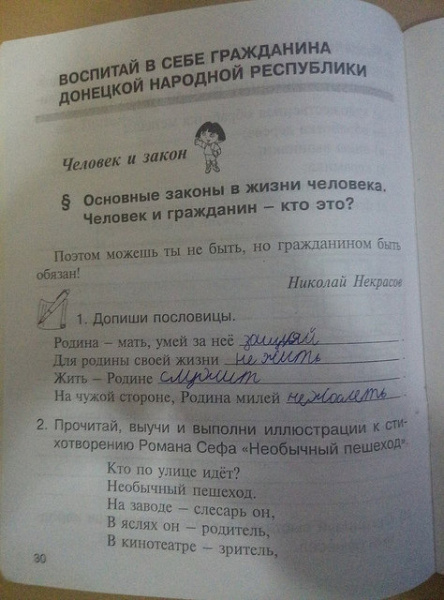 ВОСПИТАЙ В СЕБЕ ГРАЖДАНИНА
ДОНЕЦКОЙ НАРОДНОЙ РЕСПУБЛИКИ
Человек и закон
§ Основные законы в жизни человека.
Человек и гражданин – кто это?
Поэтом можешь ты не быть, но гражданином быть
обязан!
Николай Некрасов
1. Допиши пословицы.
Родина – мать, умей за неё
Для родины своей жизни не жить.
Жить – Родине служит.
На чужой стороне, Родина милей не жалеть.
2. Прочитай, выучи и выполни иллюстрации к сти-
хотворению Романа Сефа «Необычный пешеход».
Кто по улице идёт?
Необычный пешеход.
На заводе – слесарь он,
В яслях он – родитель,
В кинотеатре – зритель,
30